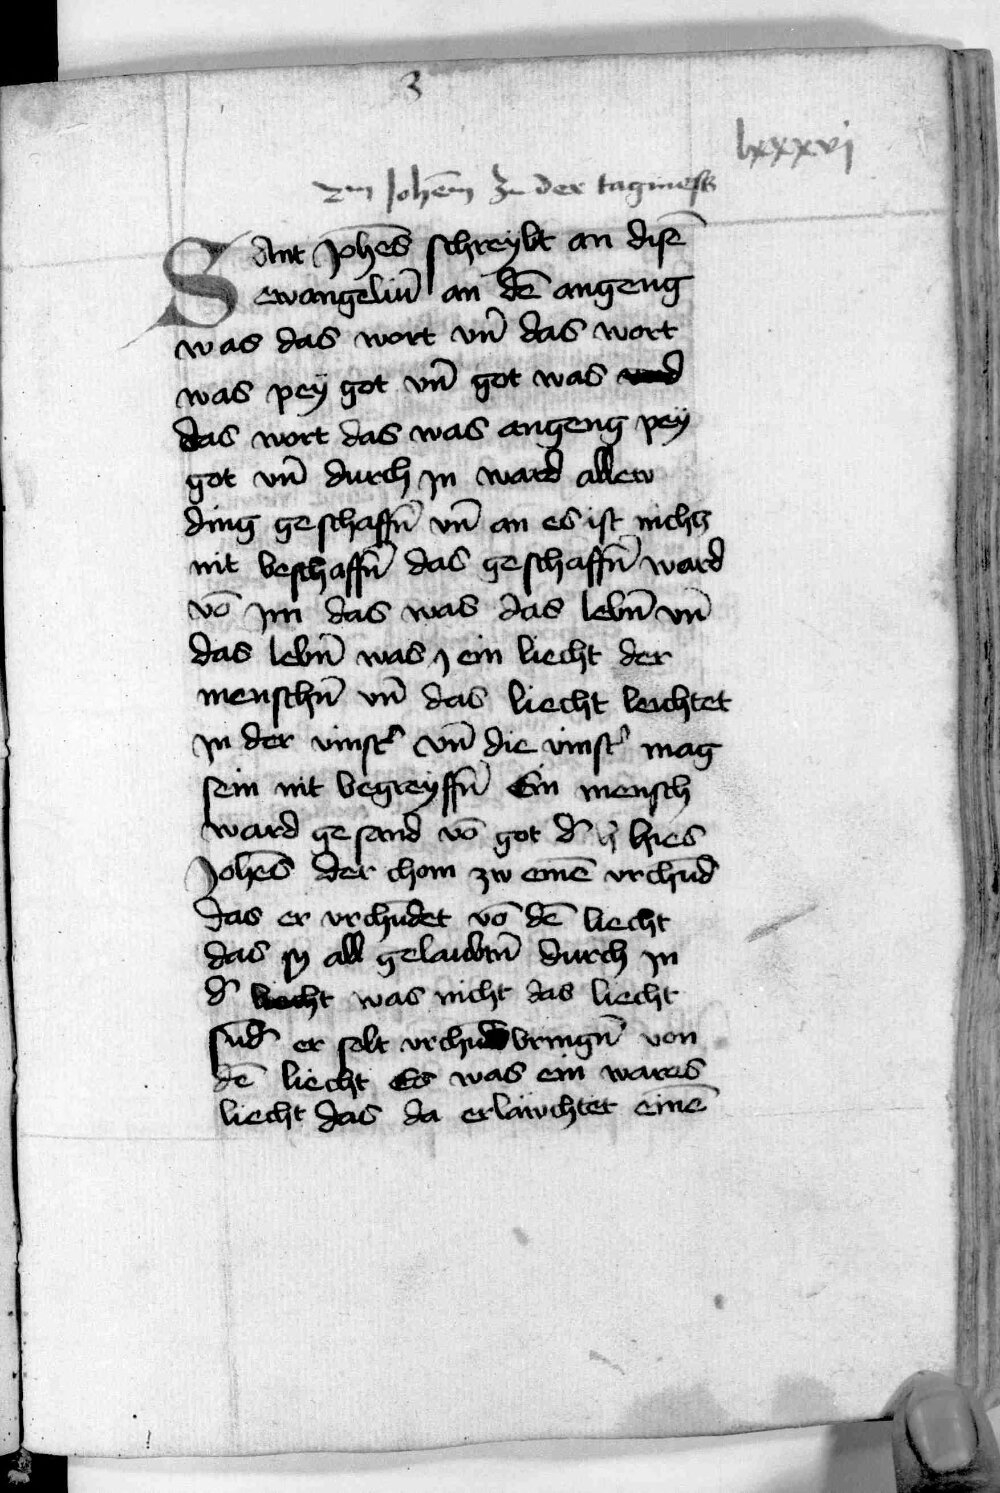 3
lxxxvj
Johēm Jn der tagmess
SAnt Johēs schreybt an disē
ewangeliū an dē angeng
was das wort vn̄ das wort
was pey got vn̄ got was
das wort das was angeng pey
got vn̄ durch jn ward allew
ding geschaffn̄ vn̄ an es ist nichtz
nit beschaffn̄ das geschaffn̄ ward
vō jm das was das lebn̄ vn̄
das lebn̄ was ein liecht der
menschn̄ vn̄ das liecht leichtet
jn der vinst' vn̄ die vinst' mag
sein nit begreyffn̄ Ein mensch
ward gesand vō got d' hies
Johēs der chom zw einē vrchūd
das er vrchūdet vō dē liecht
das sy all gelaubtn̄ durch jn
d' was nicht das liecht
sūd' er solt vrchūd bringn̄ von
dē liecht Es was ein wares
liecht das da erläwchtet einē